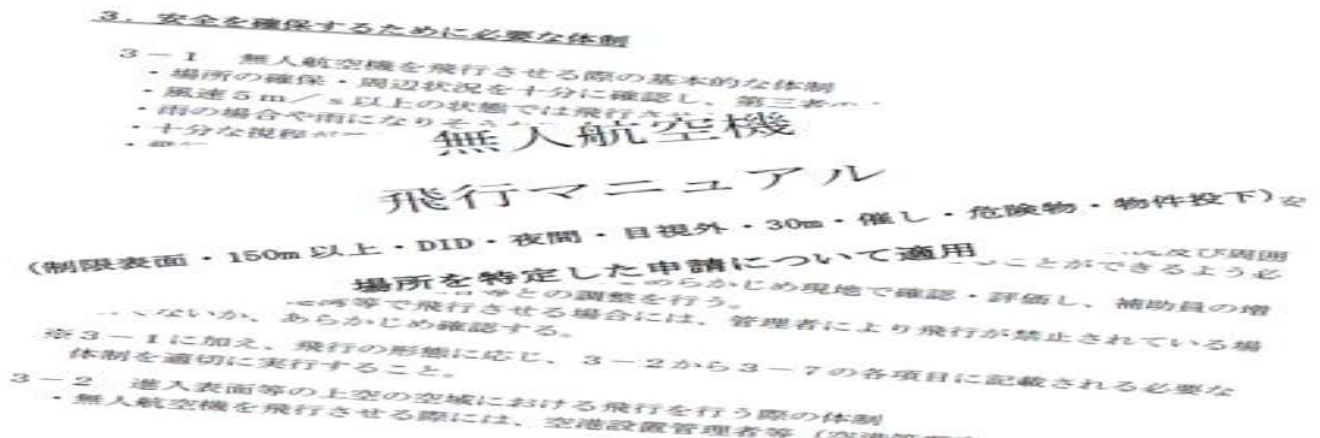 3. 安全を確保するために必要な体制
3-1 無人航空機を飛行させる際の基本的な体制
・場所の確保・周辺状況を十分に確認し、第三者の
・風速5m/s以上の状態では飛行さ
・雨の場合や雨になりそう
・十分な視程が
無人航空機
飛行マニュアル
(制限表面・150m以上・DID・夜間・目視外・30m・催し・危険物・物件投下)安
場所を特定した申請について適用
及び周囲
ことができるよう必
あらかじめ現地で確認・評価し、補助員の増
等との調整を行う。
等で飛行させる場合には、管理者により飛行が禁止されている場
いないか、あらかじめ確認する。
※3-1に加え、飛行の形態に応じ、3-2から3-7の各項目に記載される必要な
体制を適切に実行すること。
3-2 進入表面等の上空の空域における飛行を行う際の体制
・無人航空機を飛行させる際には、空港設置管理者等(空港管理